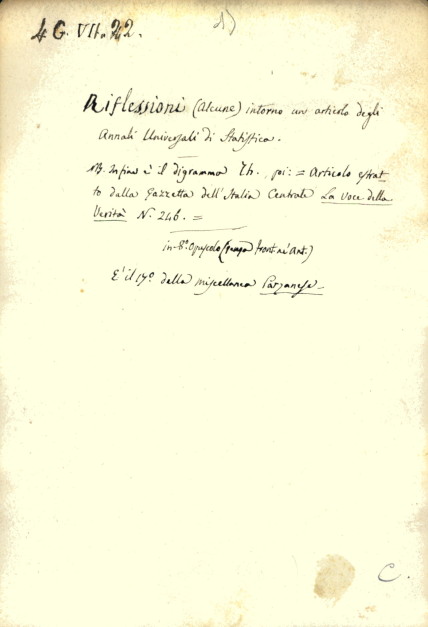 4 G. VII. 22.
Riflessioni (Alcune) intorno un articolo degli
Annali Universali di Statistica.
NB. In fine è il digramma Th., poi: = Articolo estrat-
to dalla Gazzetta dell'Italia Centrale La Voce della
Verità N.º 246. =
in-8.º Opuscolo (senza front. nè ant.)
E' il 17.º della miscellanea
C.